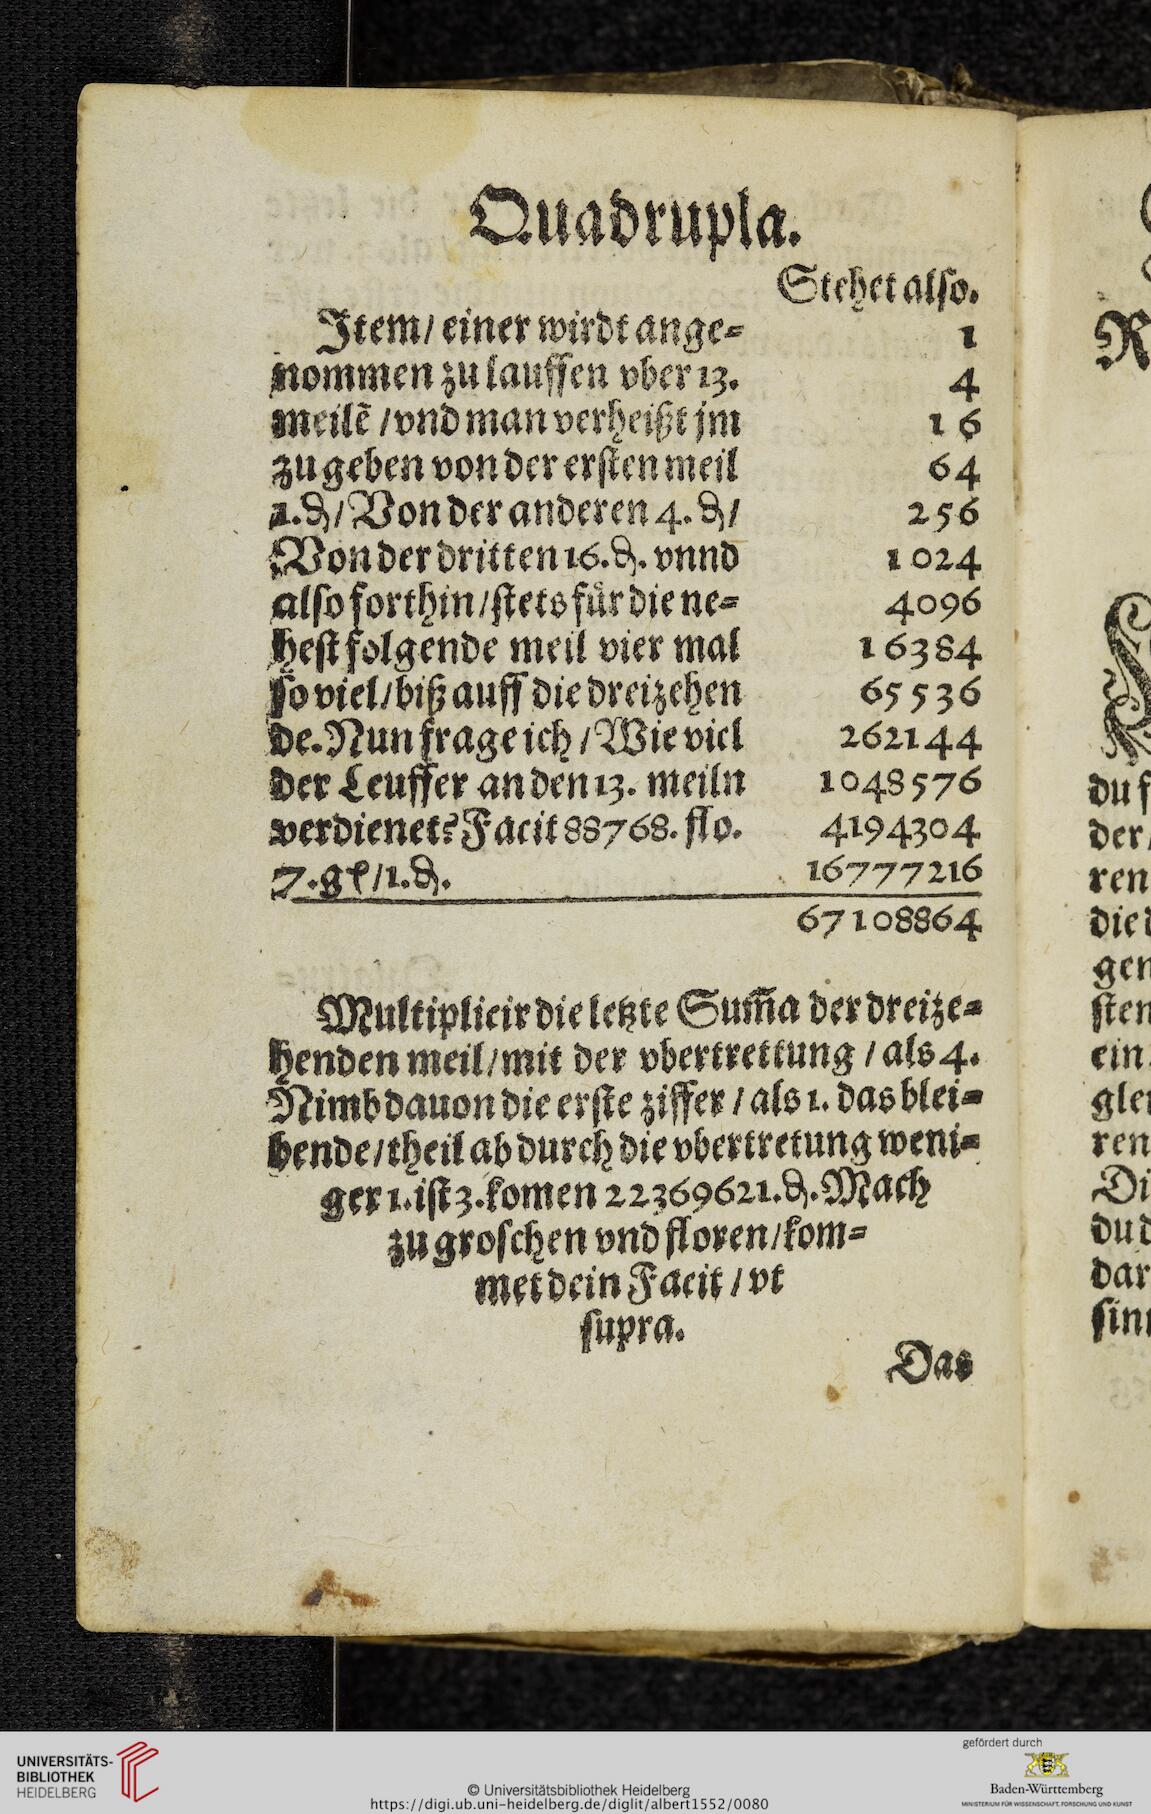 Quadrupla.
Stehet also.
Item / einer wirdt ange=
nommen zu lauffen vber 13.
meilē / vnd man verheißt jm
zu geben von der ersten meil
1. ₰ / Von der anderen 4. ₰ /
Von der dritten 16. ₰. vnnd
also forthin / stets für die ne=
hest folgende meil vier mal
so viel / biß auff die dreizehen
de. Nun frage ich / Wie viel
der Leuffer an den 13. meiln
verdienet? Facit 88768. flo.
7. gl / 1. ₰.
1
4
16
64
256
1024
4096
16384
65536
262144
1048576
4194304
16777216
67108864
Multiplicir die letzte Sum̄a der dreize=
henden meil / mit der vbertrettung / als 4.
Nimb dauon die erste ziffer / als 1. das blei=
bende / theil ab durch die vbertretung weni=
ger 1. ist 3. komen 22369621. ₰. Mach
zu groschen vnd floren / kom=
met dein Facit / vt
supra.
Das
R
du f
der /
ren
die d
gen
sten
ein
ren
Di
du d
dar
UNIVERSITÄTS-
BIBLIOTHEK
HEIDELBERG
© Universitätsbibliothek Heidelberg
https://digi.ub.uni-heidelberg.de/diglit/albert1552/0080
gefördert durch
Baden-Württemberg
MINISTERIUM FÜR WISSENSCHAFT, FORSCHUNG UND KUNST